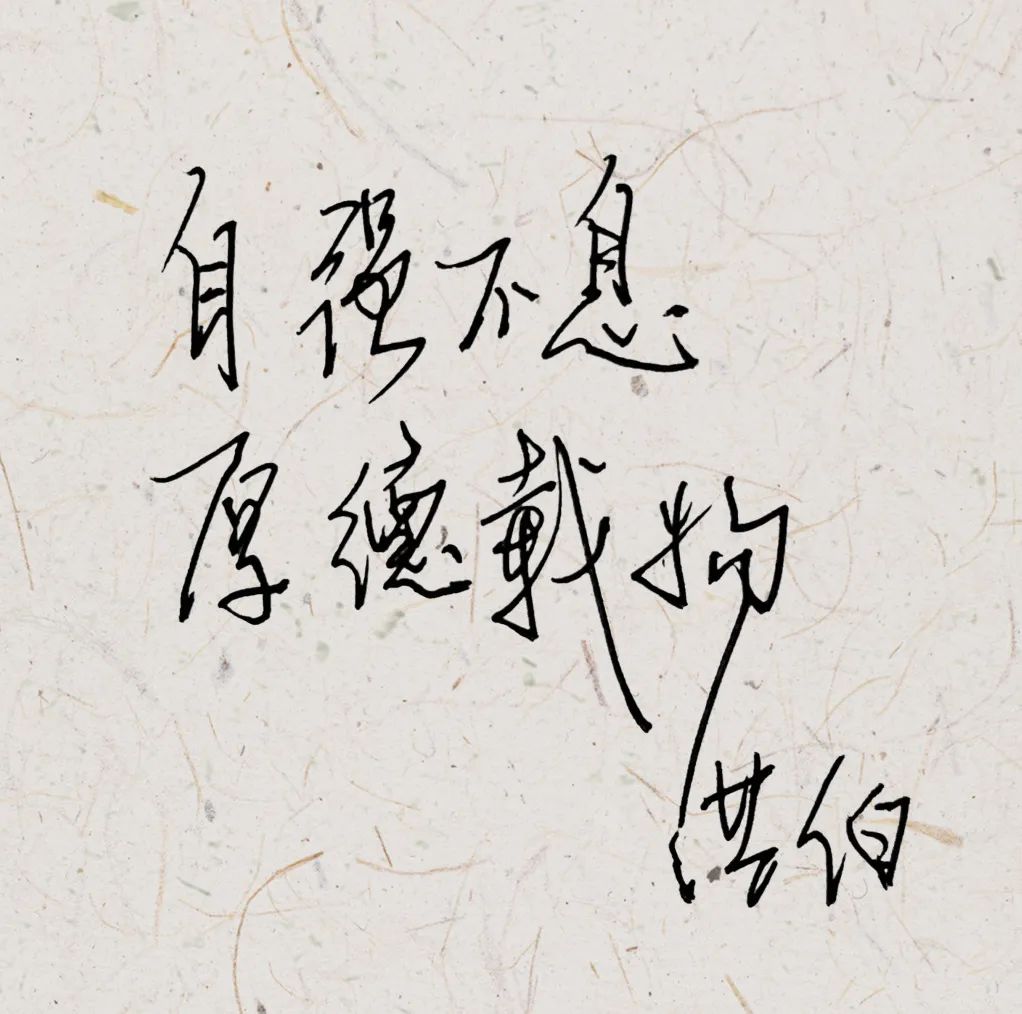 自强不息
厚德载物
洪伯